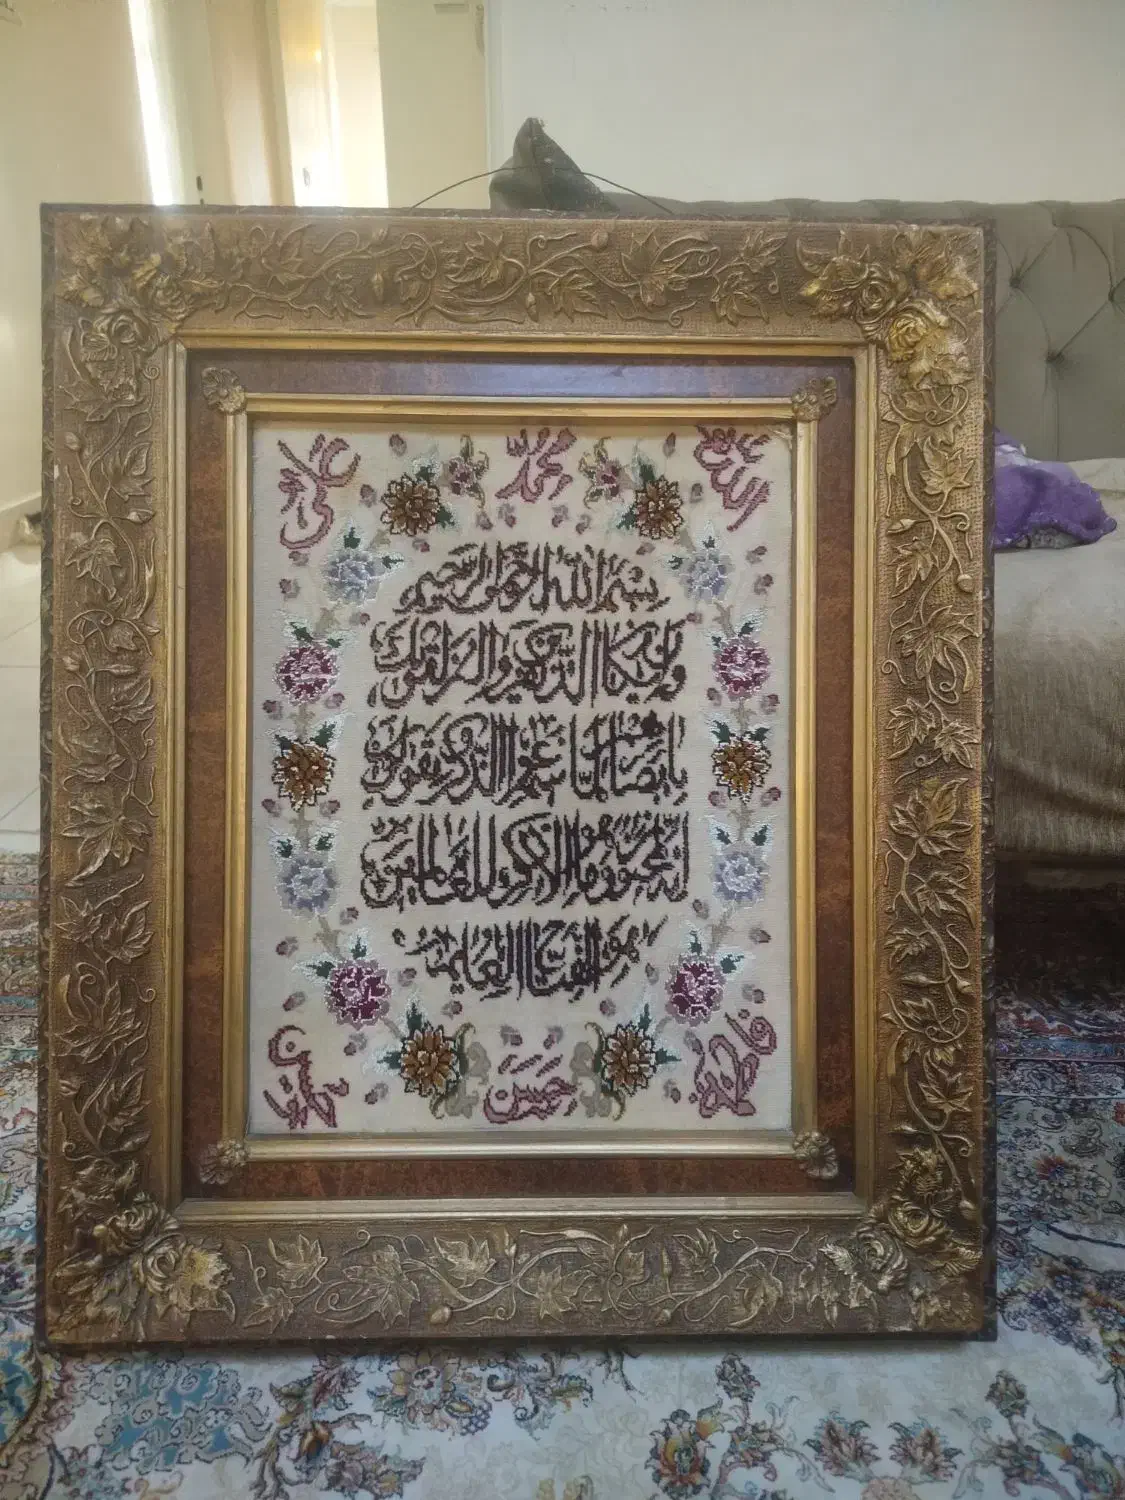 الله جل جلاله
محمد
علی
بسم الله الرحمن الرحیم
وان یکاد الذین کفروا لیزلقونک
بابصارهم لما سمعوا الذکر و یقولون
انه لمجنون و ما هو الا ذکر للعالمین
هو الفتاح العلیم
فاطمه
حسین
حسن